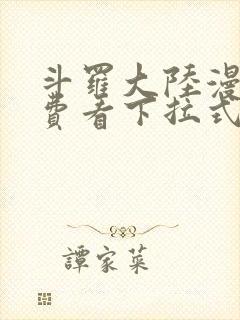 斗羅大陸漫
費看下拉式
譚家菜